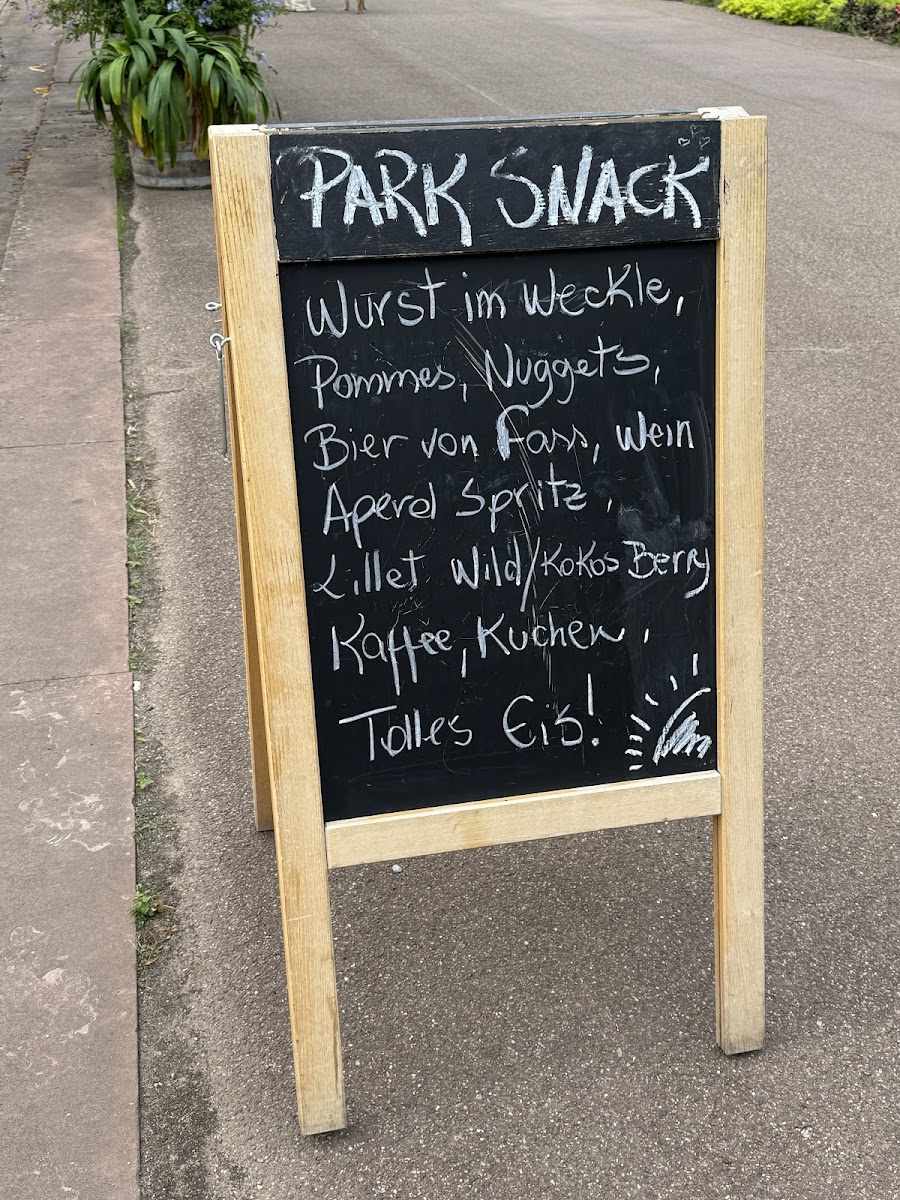 PARK SNACK
Wurst im Weckle,
Pommes, Nuggets,
Bier von Fass, Wein
Aperol Spritz,
Lillet Wild/Kokos Berry
Kaffee, Kuchen,
Tolles Eis!